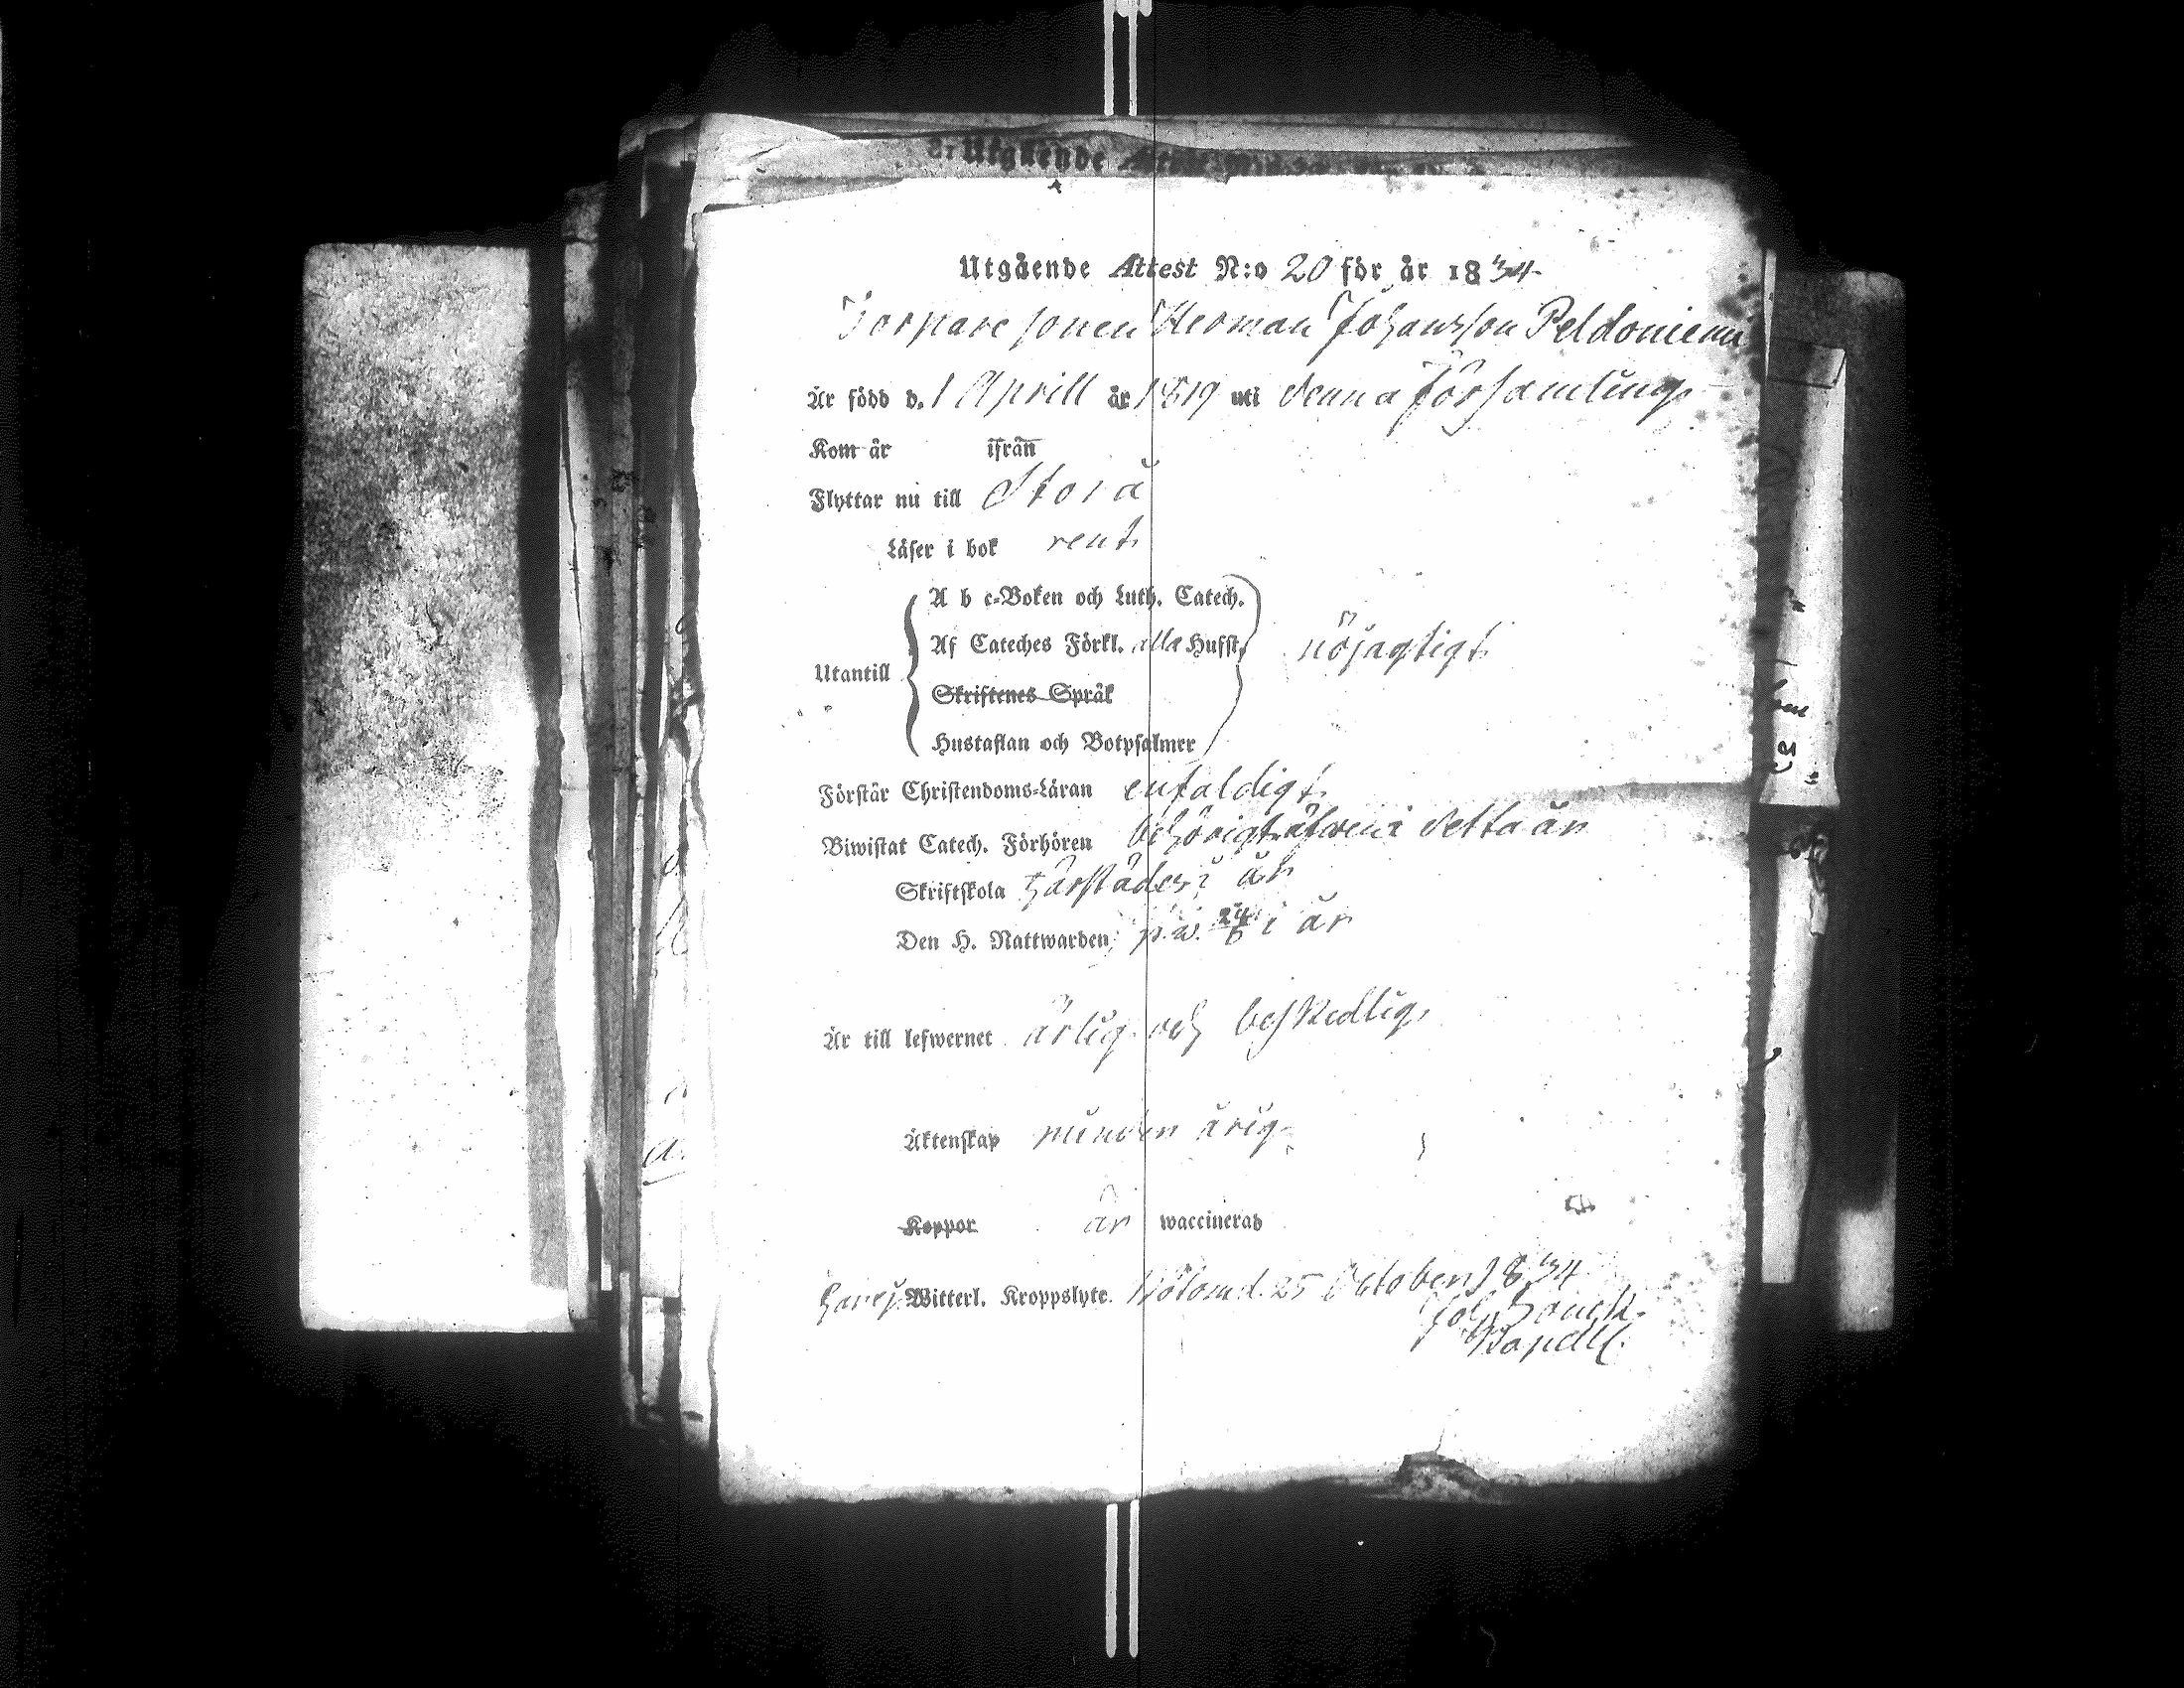 Utgående Attest N:o 20 för år 1834
Torpare sonen Herman Johansson Peldoniemi
Är född d. 1 Aprill år 1819 uti denna församling
Kom år ifrån
Flyttar nu till Storå
Läser i bok rent
A b c-Boken och Luth. Catech.
Af Cateches Förkl. alla Hufst. nöjagtigt
Utantill
Skriftenes Språk
Hustaflan och Botpsalmer
Förstår Christendoms-Läran enfaldigt
Biwistat Catech. Förhören behörigt äfven i detta år
Skriftskola härstädes i år
Den H. Nattwarden p.w. 24/6 i år
Är till lefwernet ärlig och beskedlig
Äktenskap minderårig
Koppor är waccinerad
har ej Witterl. Kroppslyte. d. 25 October 1834
Joh.